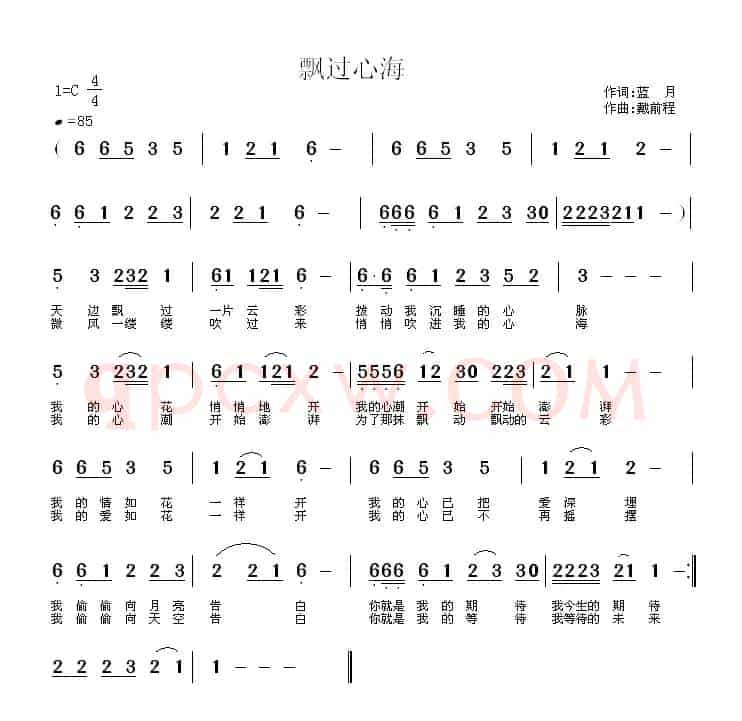 飘过心海
1=C 4/4
作词:蓝 月
作曲:戴前程
=85
( 6 6 5 3 5 | 1 2 1 6 – | 6 6 5 3 5 | 1 2 1 2 – |
6 6 1 2 2 3 | 2 2 1 6 – | 666 6 1 2 3 30 | 2223211 – )
5 3 232 1 | 61 121 6 – | 6·6 6 1 2 3 5 2 | 3 – – |
天 边 飘 过 一片 云 彩 拨 动 我 沉 睡 的 心 脉
微 风 一缕 缕 吹 过 来 悄 悄 吹 进 我 的 心 海
5 3 232 1 | 6 1 121 2 – | 5556 12 30 223 | 2 1 1 |
我 的 心 花 悄 悄 地 开 我的心潮 开 始 开始 澎 湃
我 的 心 潮 开 始 澎 湃 为了那抹 飘 动 飘动的 云 彩
qpcxw.COM
6 6 5 3 5 | 1 2 1 6 – | 6 6 5 3 5 | 1 2 1 2 – |
我 的 情 如 花 一 样 开 我 的 心 已 把 爱 深 埋
我 的 爱 如 花 一 样 开 我 的 心 已 不 再 摇 摆
6 6 1 2 2 3 | 2 2 1 6 – | 666 6 1 2 3 30 | 2223 21 1 – :||
我 偷 偷 向 月 亮 告 白 你就是 我 的 期 待 我今生的 期 待
我 偷 偷 向 天 空 告 白 你就是 我 的 等 待 我等待的 未 来
2 2 2 3 2 1 | 1 – – – ||